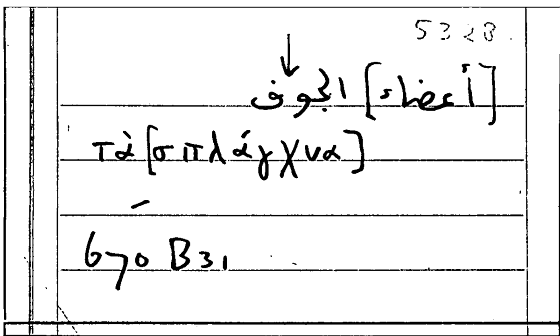 5328.
[أعضاء] الجوف
τὰ [σπλάγχνα]
670 B31